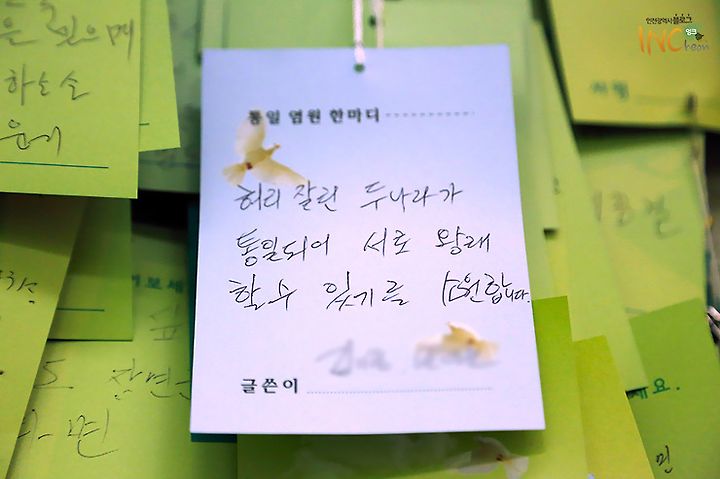 인천광역시블로그
INCheon
잉크
통일 염원 한마디
허리 잘린 두나라가
통일되어 서로 왕래
할수 있기를 소원합니다.
글쓴이
하소서
세요.
민